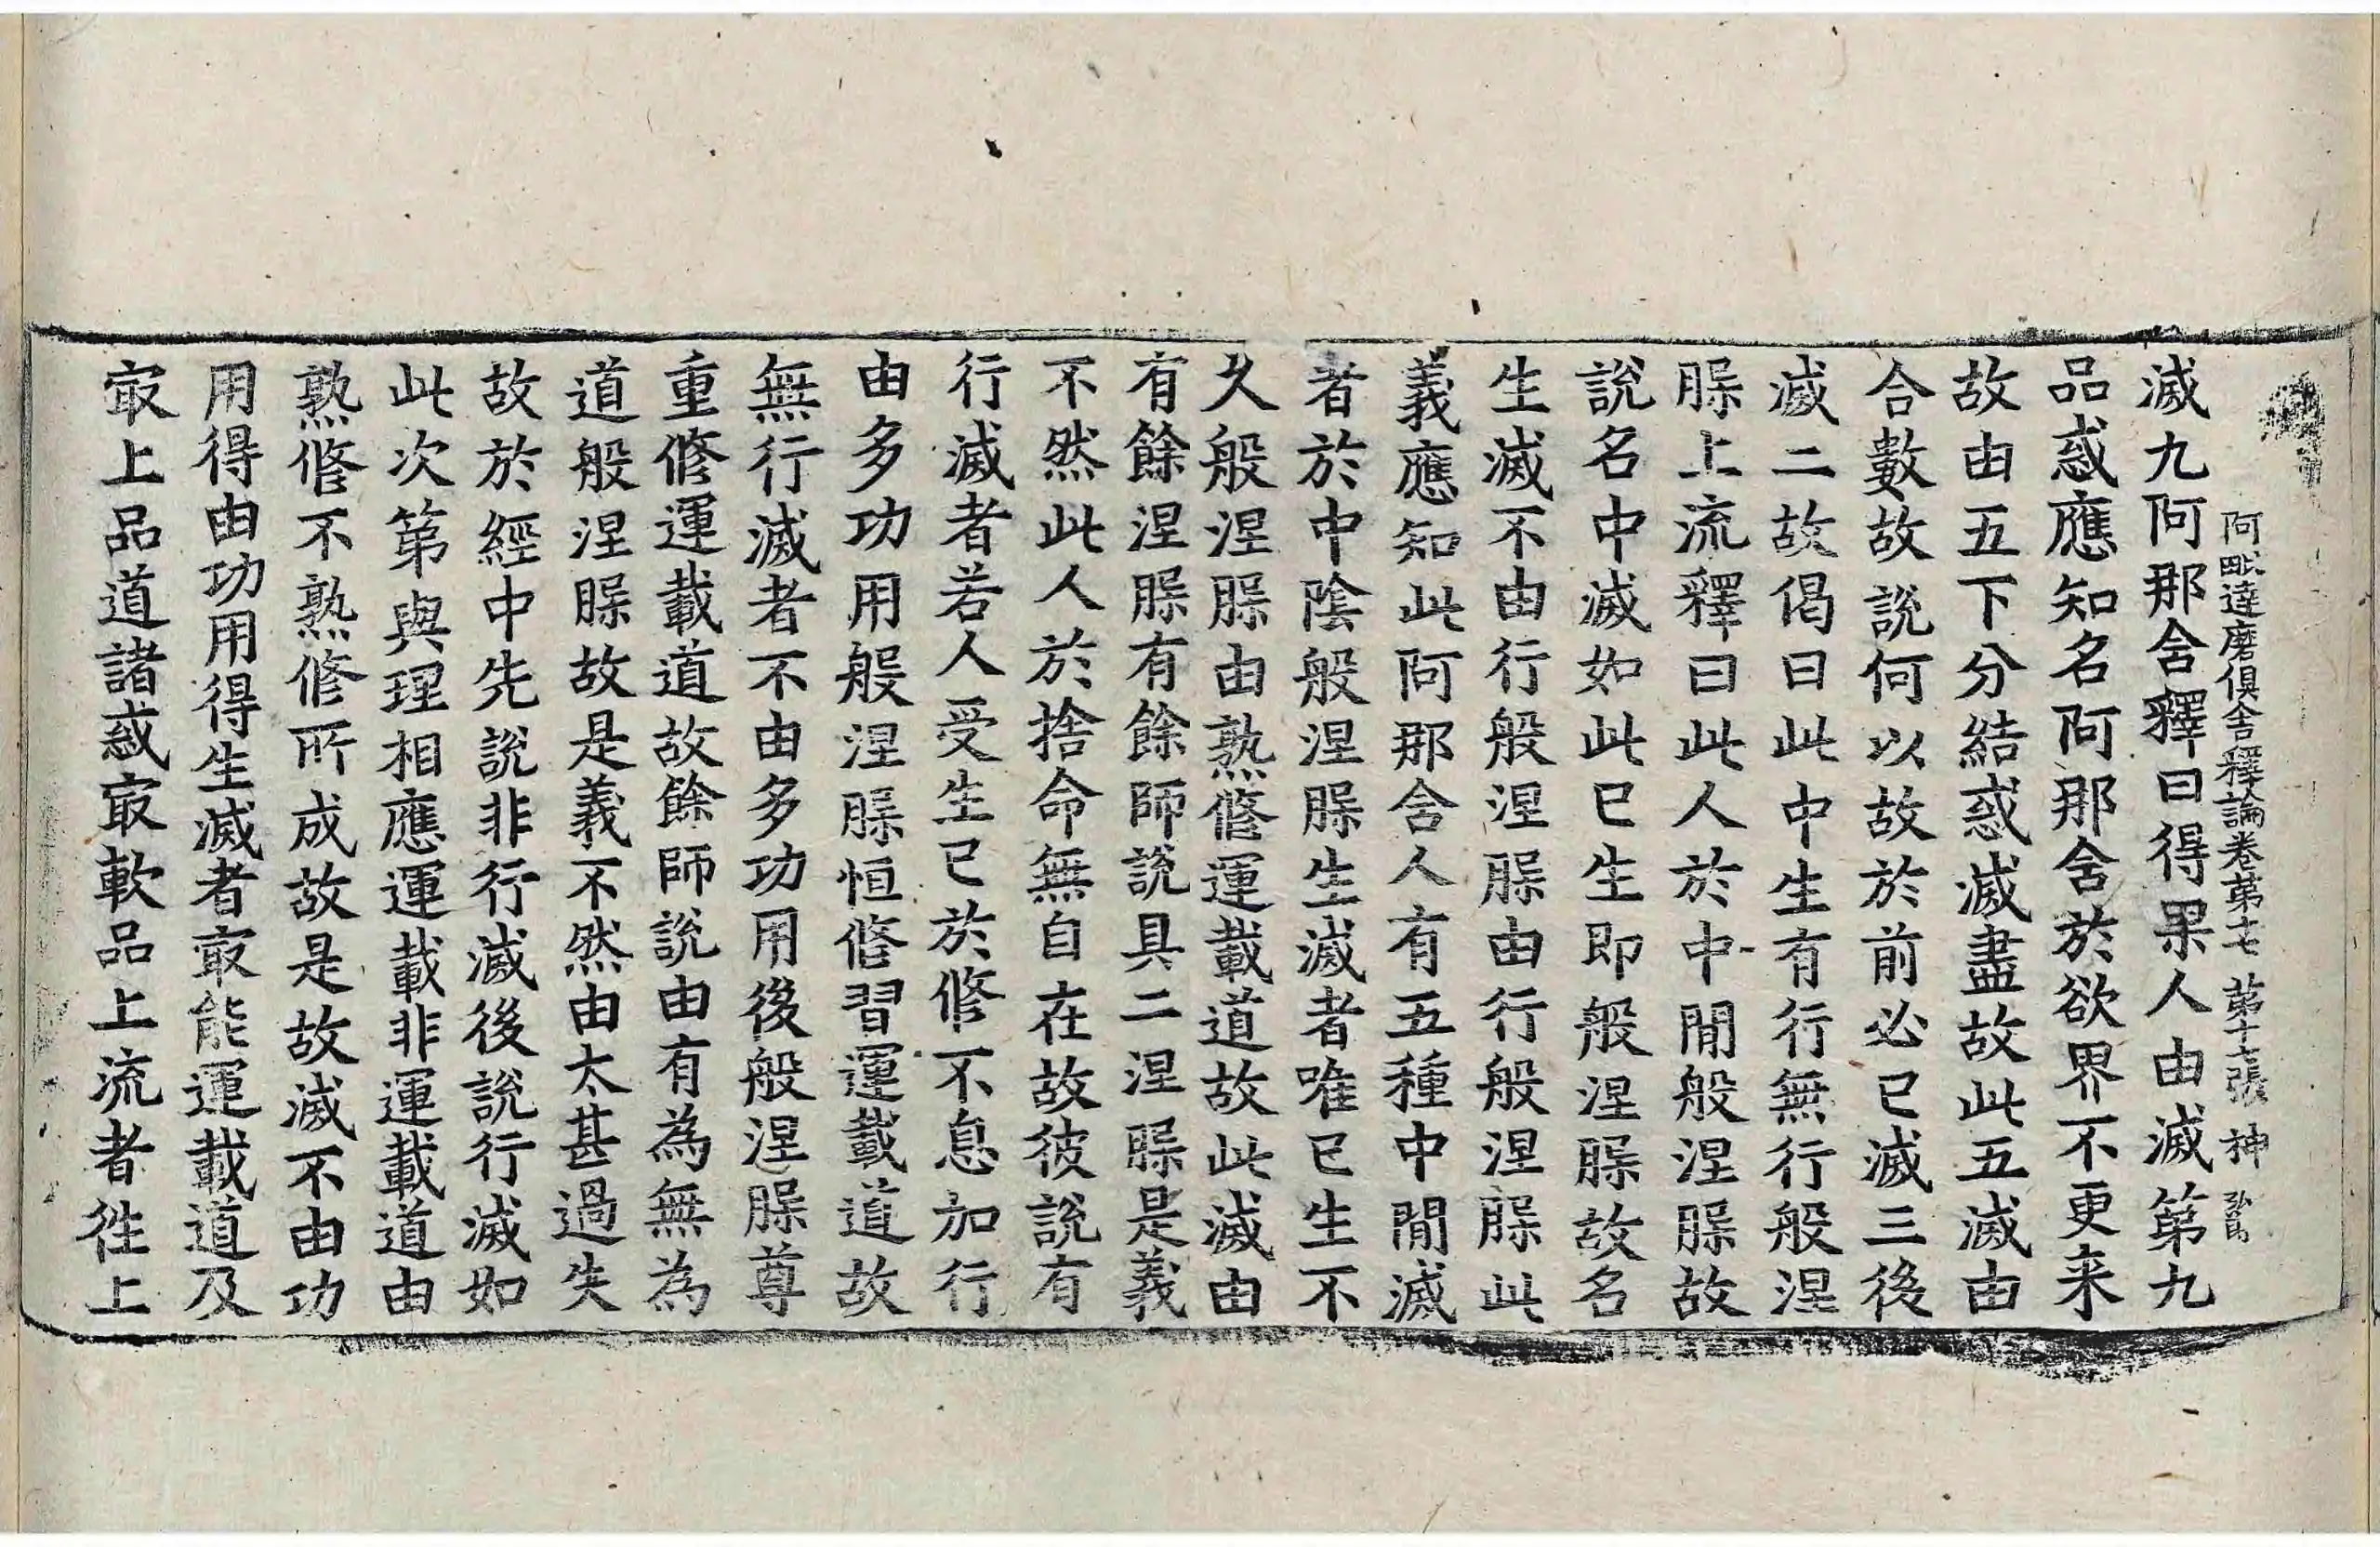 阿毗達磨俱舍釋論卷第十七 第十七張 神
滅九阿那舍釋曰得果人由滅第九
品惑應知名阿那舍於欲界不更来
故由五下分結惑滅盡故此五滅由
合數故說何以故於前必已滅三後
滅二故偈曰此中生有行無行般涅
脲上流釋曰此人於中間般涅脲故
說名中滅如此已生即般涅脲故名
生滅不由行般涅脲由行般涅脲此
義應知此阿那舍人有五種中間滅
者於中陰般涅脲生滅者唯已生不
久般涅脲由熟修運載道故此滅由
有餘涅脲有餘師說具二涅脲是義
不然此人於捨命無自在故彼說有
行滅者若人受生已於修不息加行
由多功用般涅脲恒修習運載道故
無行滅者不由多功用後般涅脲尊
重修運載道故餘師說由有為無為
道般涅脲故是義不然由太甚過失
故於經中先說非行滅後說行滅如
此次第與理相應運載非運載道由
熟修不熟修所成故是故滅不由功
用得由功用得生滅者㝡能運載道及
㝡上品道諸惑㝡軟品上流者徃上